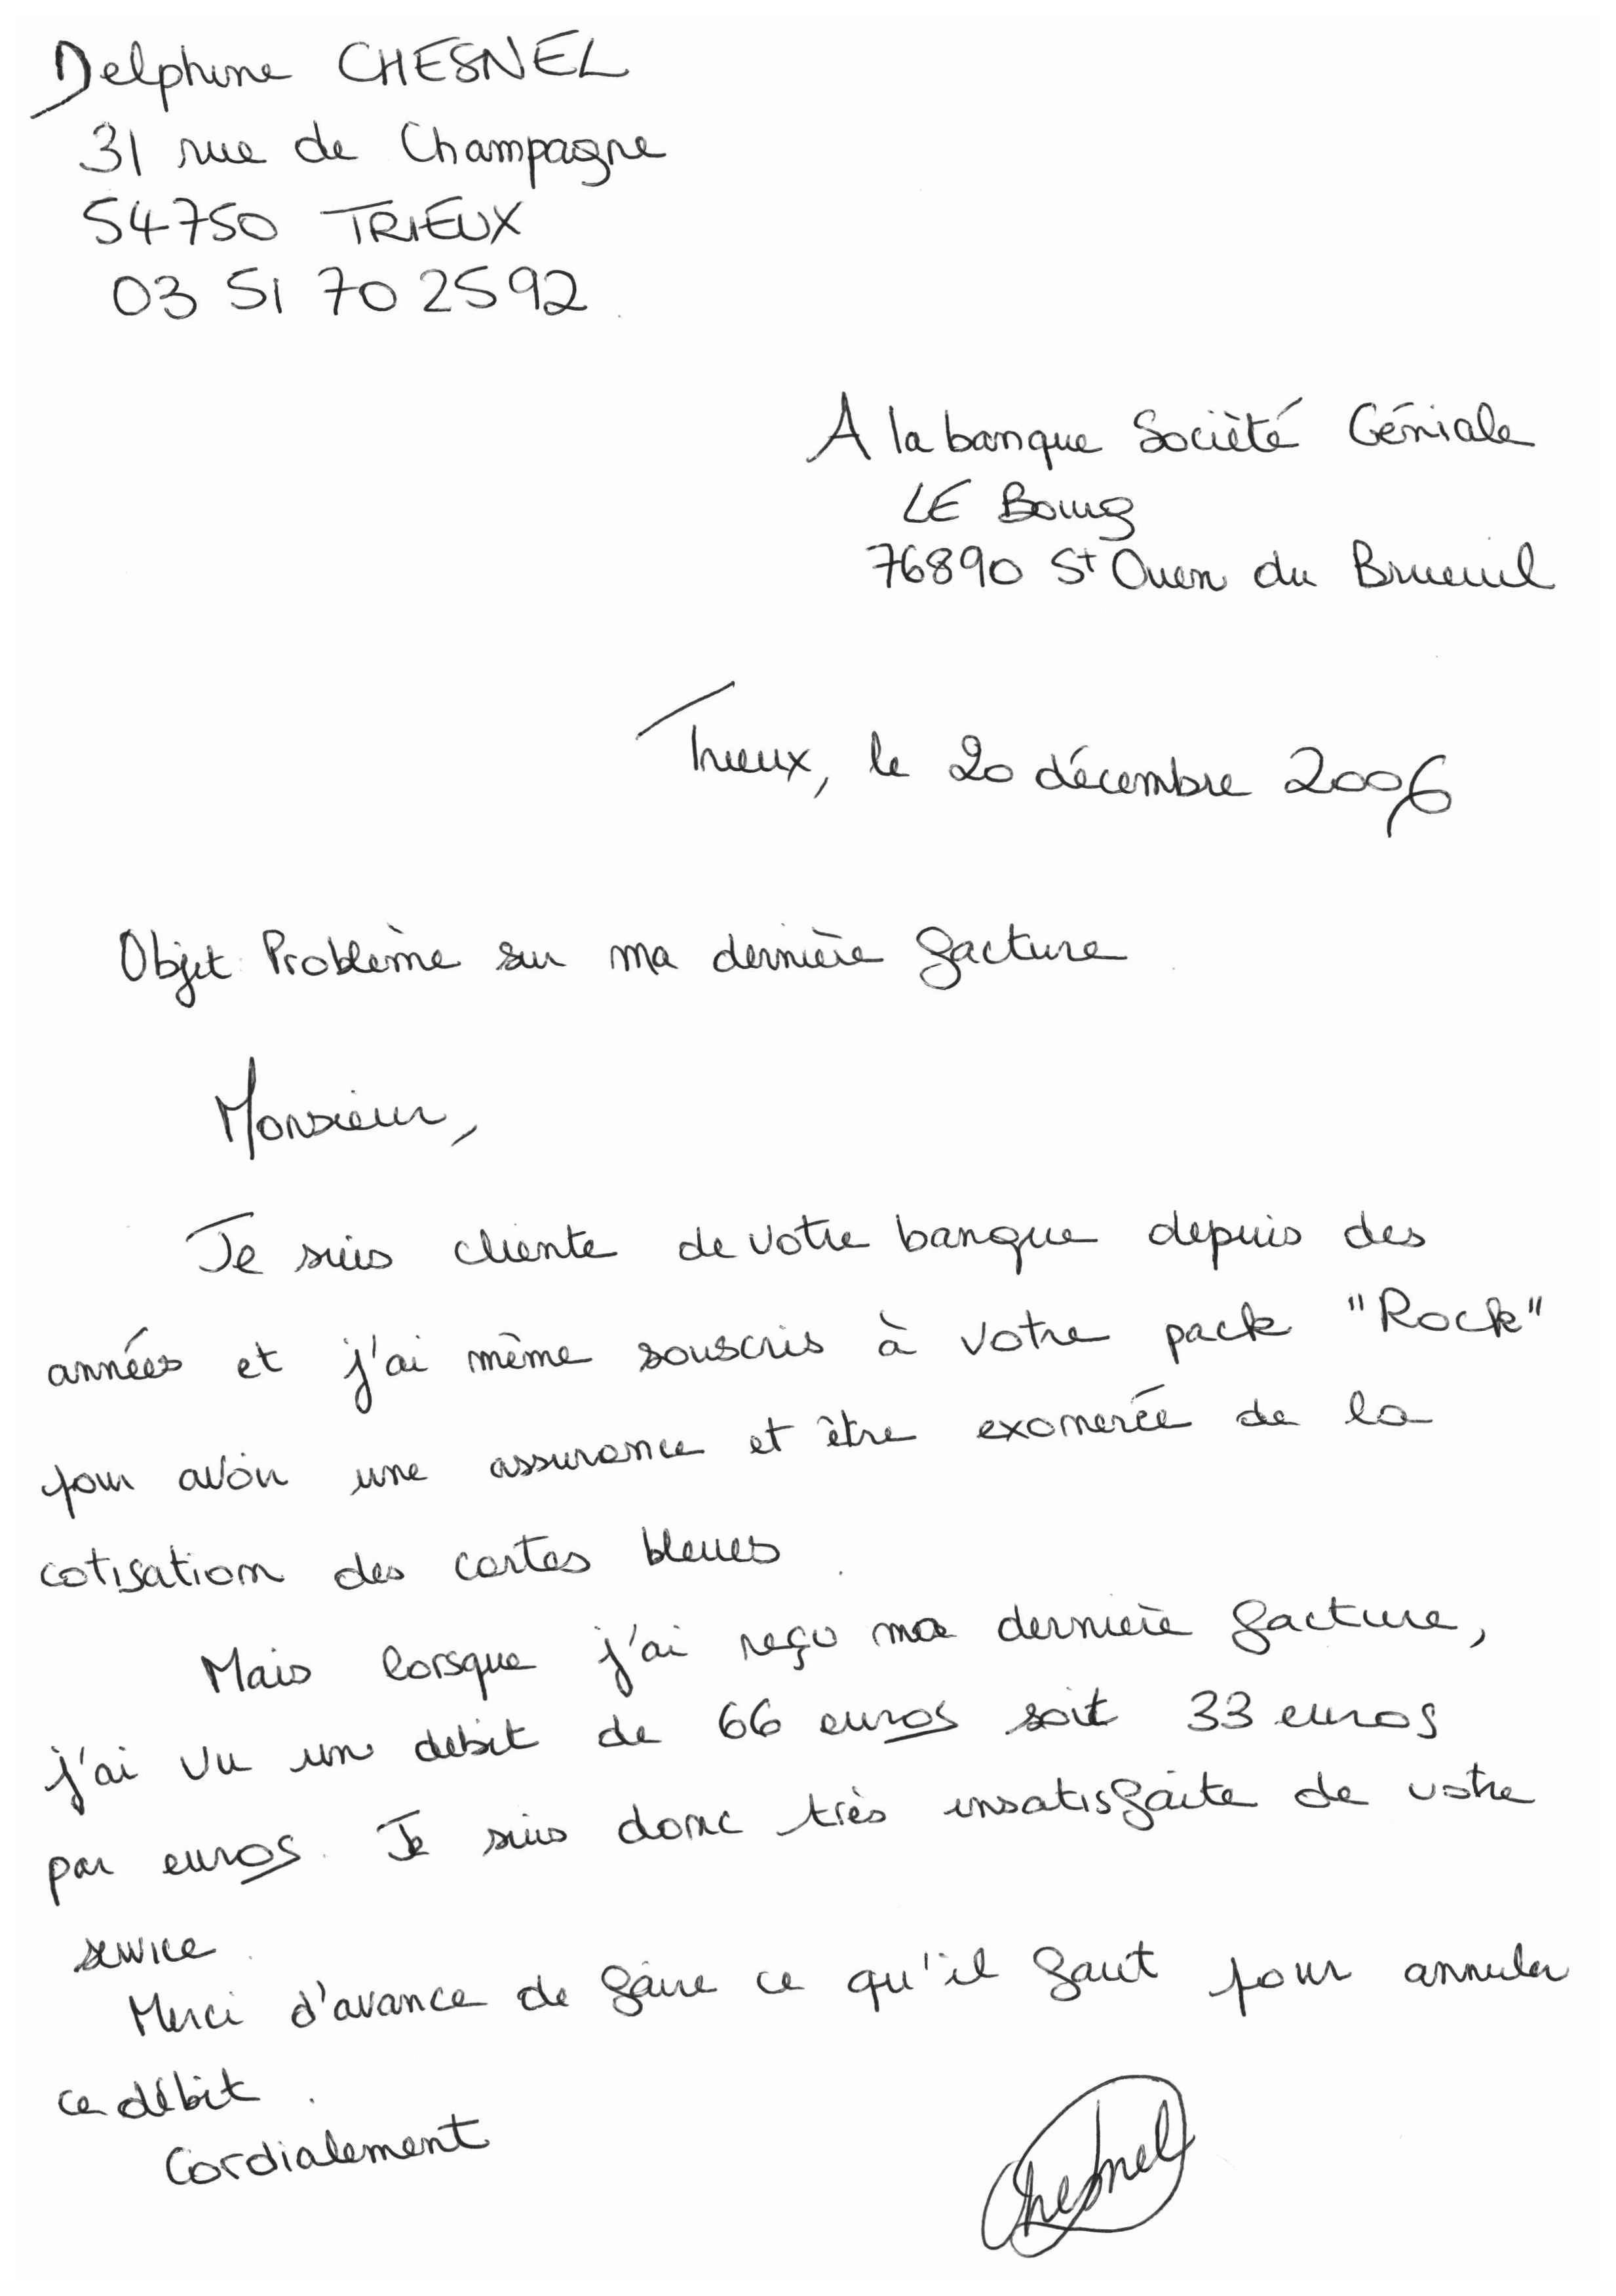 Delphine CHESNEL
31 rue de Champagne
54750 TRIEUX
03 51 70 25 92
A la banque Société Géniale
LE Bourg
76890 St Ouen du Brueuil
Trieux, le 20 décembre 2006
Objet : Problème sur ma dernière facture
Monsieur,
Je suis cliente de votre banque depuis des
années et j'ai même souscris à votre pack "Rock"
pour avoir une assurance et être exonerée de la
cotisation des cartes bleues.
Mais lorsque j'ai reçu ma dernière facture,
j'ai vu un debit de 66 euros soit 33 euros
par euros. Je suis donc très insatisfaite de votre
service.
Merci d'avance de faire ce qu'il faut pour annuler
ce débit.
Cordialement
Chesnel